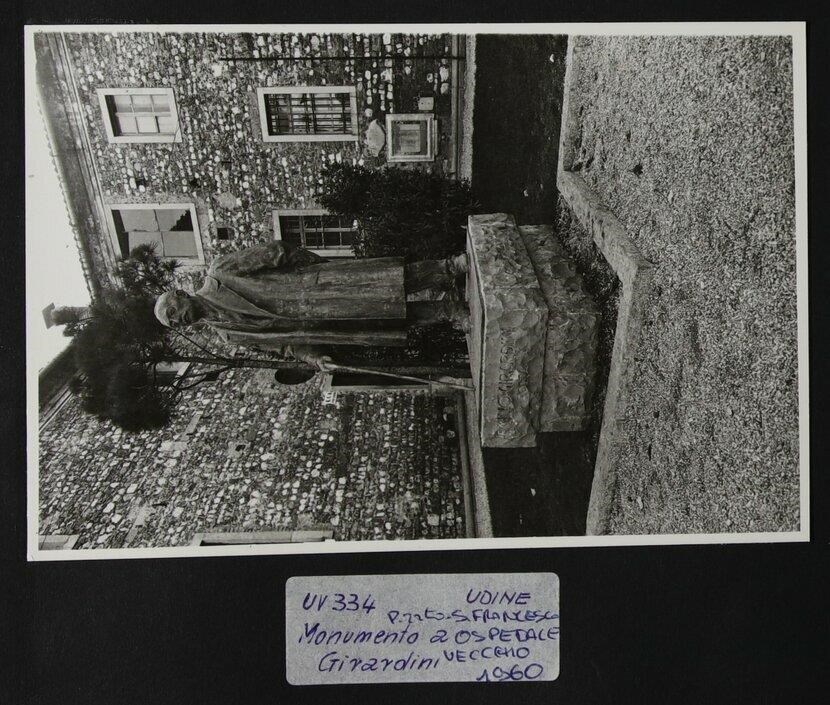 UV 334 UDINE
P.zzto S. FRANCESCO
Monumento a OSPEDALE
Girardini VECCHIO
1960